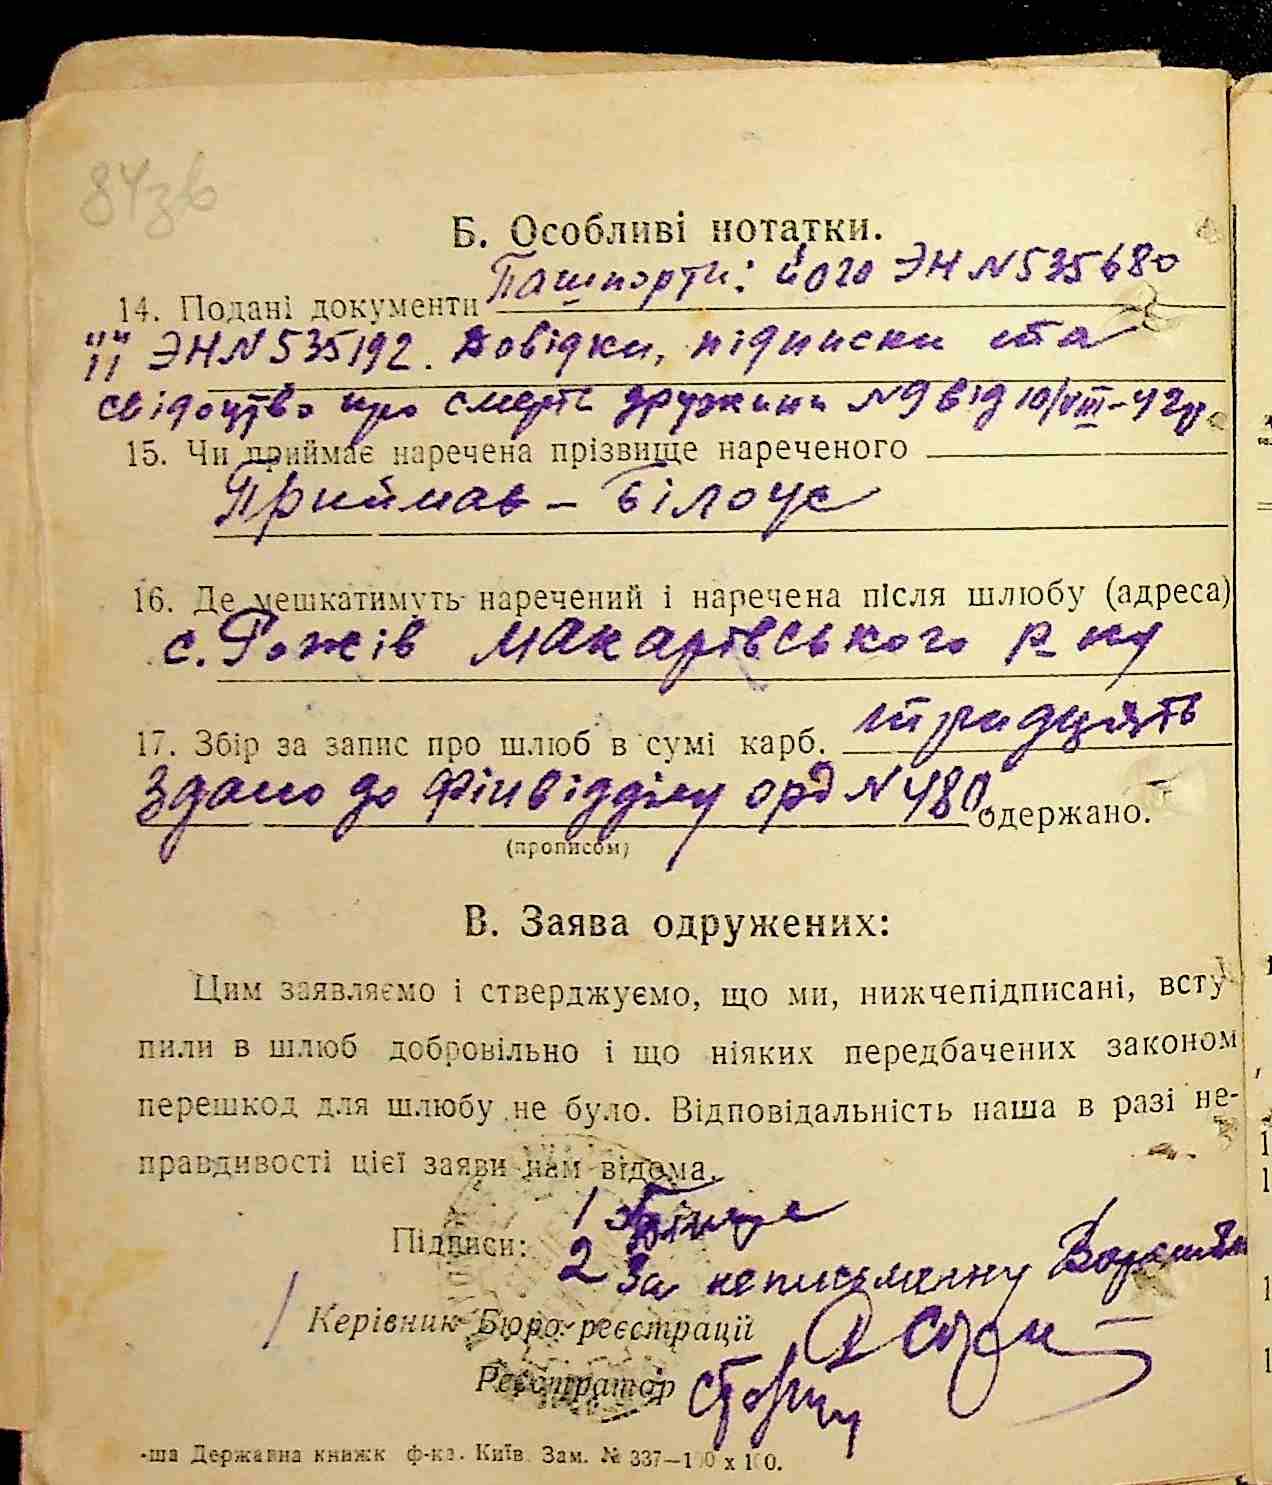 84зв
Б. Особливі нотатки.
14. Подані документи Пашпорти: його ЭН №535680
її ЭН№535192. Довідки, підписки та
свідоцтво про смерть дружини №9 від 10/VIII-42р.
15. Чи приймає наречена прізвище нареченого
Приймає - Білоус
16. Де мешкатимуть наречений і наречена після шлюбу (адреса)
с. Рожів Макарівського р-ну
17. Збір за запис про шлюб в сумі карб. тридцять
Здано до Фінвідділу орд №480 одержано.
(прописом)
В. Заява одружених:
Цим заявляємо і стверджуємо, що ми, нижчепідписані, всту-
пили в шлюб добровільно і що ніяких передбачених законом
перешкод для шлюбу не було. Відповідальність наша в разі не-
правдивості цієї заяви нам відома.
Підписи: 1
2 За неписьменну
Керівник Бюро реєстрації
Реєстратор
-ша Державна книжк ф-ка. Київ. Зам. № 337—100 х 100.